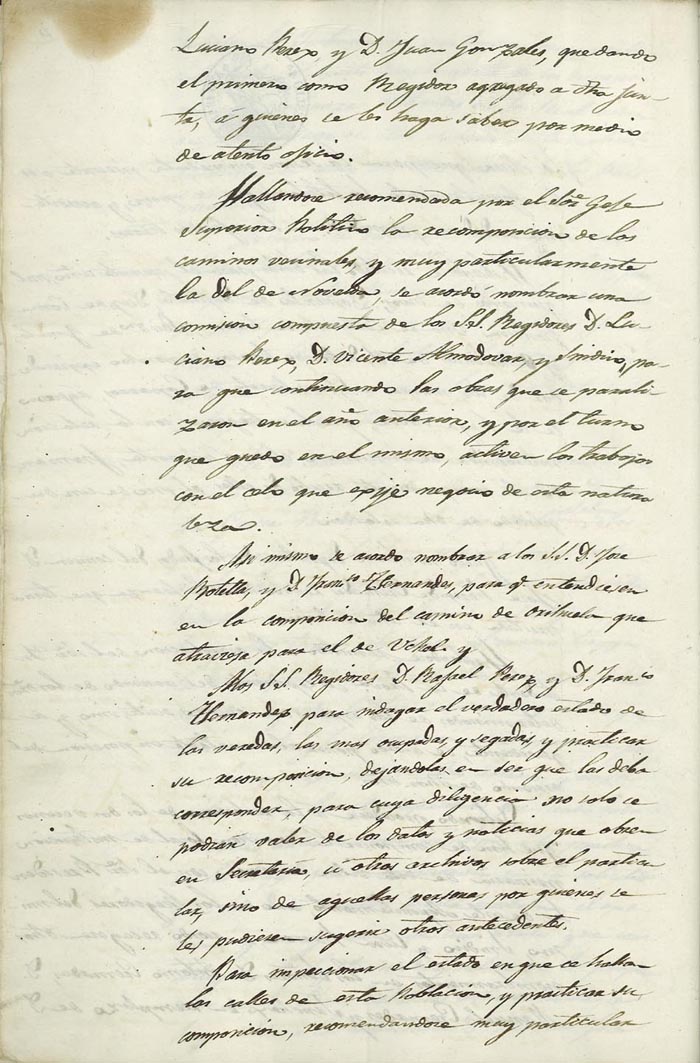 Luciano Perez, y D. Juan Gonzales, quedando
el primero como Regidor agregado a dha jun-
ta, á quienes se les haga saber por medio
de atento oficio.
Hallandose recomendada por el Sor. Gefe
Superior Politico la recomposicion de los
caminos vecinales, y muy particularmente
la del de Novelda, se acordó nombrar una
comision compuesta de los S.S. Regidores D. Lu-
ciano Perez, D. Vicente Almodovar, y Sindico, pa-
ra que continuando las obras que se parali-
zaron en el año anterior, y por el turno
que quedo en el mismo, activen los trabajos
con el celo que exije negocio de esta natura
leza.
Asi mismo se acordo nombrar a los S.S. D. Jose
Botella, y D. Franco. Hernandes, para qe. entendiesen
en la composicion del camino de orihuela que
atraviesa para el de
Alos S.S. Regidores D. Rafael Perez, y D. Franco
Hernandez para indagar el verdadero estado de
las veredas, las mas ocupadas, y segadas, y practicar
su recomposicion, dejandolas en ser que las deba
corresponder, para cuya diligencia no solo se
podrán valer de los datos y noticias que obren
en Secretaria, ú otros archivos sobre el particu
lar, sino de aquellas personas por quienes se
les pudieren sugerir otros antecedentes.
Para inspeccionar el estado en que se hallan
las calles de esta Poblacion, y practicar su
composicion, recomendandose muy particular